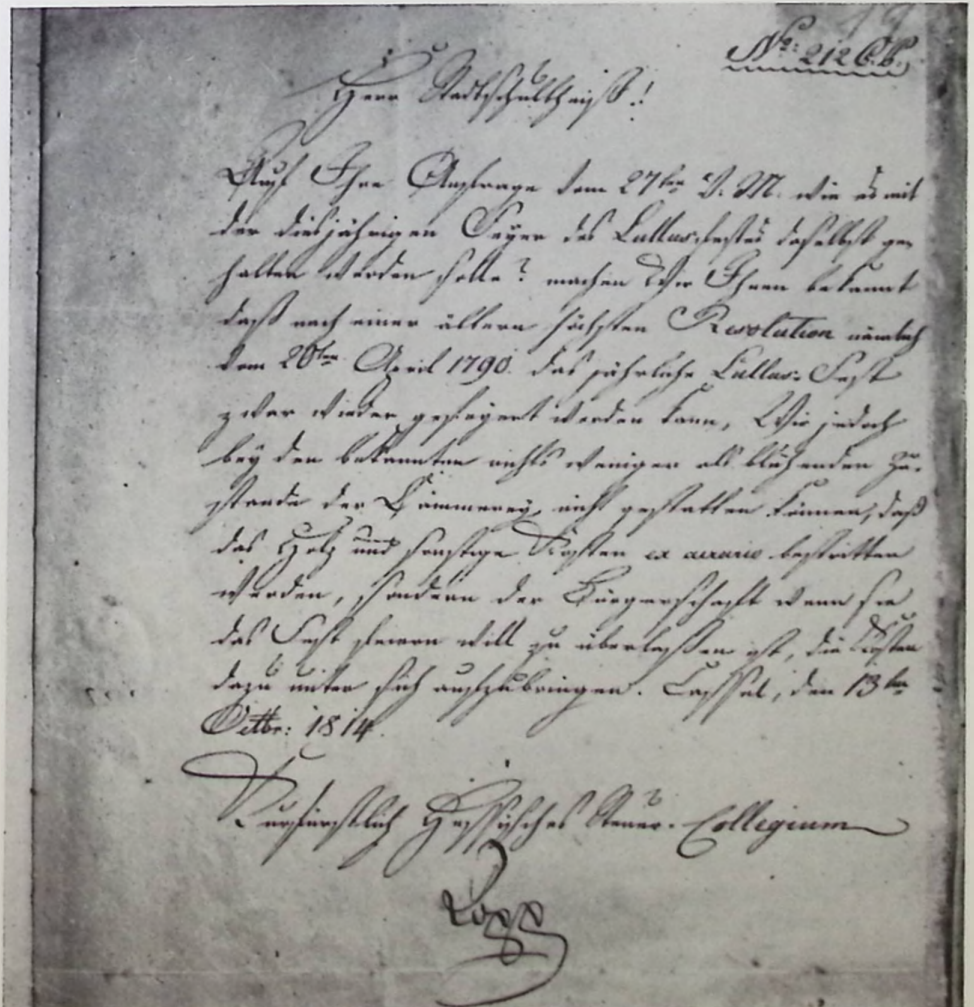 No: 212 C.P.
Herr Stadtschultheiß!
Auf Ihre Anfrage vom 27ten v. M. wie es mit
der diesjährigen Feyer des Lullus-festes daselbst ge-
halten werden solle? machen Wir Ihnen bekannt
daß nach einer ältern höchsten Resolution nämlich
vom 20ten April 1790. das jährliche Lullus-Fest
zwar wieder gefeyert werden kann, Wir jedoch
bey den bekannten nichts weniger als blühenden Zu-
stande der Cämmerey, nicht gestatten können, daß
das Holz und sonstige Kosten ex aerario bestritten
werden, sondern der Bürgerschaft wenn sie
das Fest feiern will zu überlaßen ist, die Kosten
dazu unter sich aufzubringen. Cassel, den 13ten
Octbr: 1814.
Kurfürstlich Hessisches Steuer-Collegium